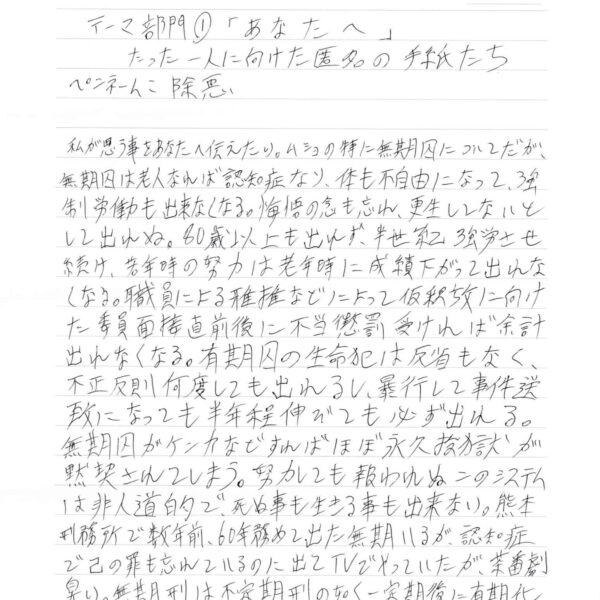 テーマ部門①「あなたへ」
たった一人に向けた匿名の手紙たち
ペンネームこ 除悪
私が思う事をあなたへ伝えたい。ムショの特に無期囚についてだが、
無期囚は老人なれば認知症なり、体も不自由になって、強
制労働も出来なくなる。悔悟の念も忘れ、更生してないと
して出れぬ。80歳以上も出れず、半世紀強労させ
続け、若年時の努力は老年時に成績下がって出れな
くなる。職員による邪推などによって仮釈放に向け
た委員面接直前後に不当懲罰受ければ余計
出れなくなる。有期囚の生命犯は反省もなく、
不正反則何度しても出れるし、暴行して事件送
致になっても半年程伸びても必ず出れる。
無期囚がケンカなどすればほぼ永久捨獄が
黙契されてしまう。努力しても報われぬこのシステム
は非人道的で、死ぬ事も生きる事も出来ない。熊本
刑務所で数年前、60年務めて出た無期いるが、認知症
で己の罪も忘れているのに出てTVでやっていたが、茶番劇
臭い。無期刑は不定期刑の如く一定期後に有期化